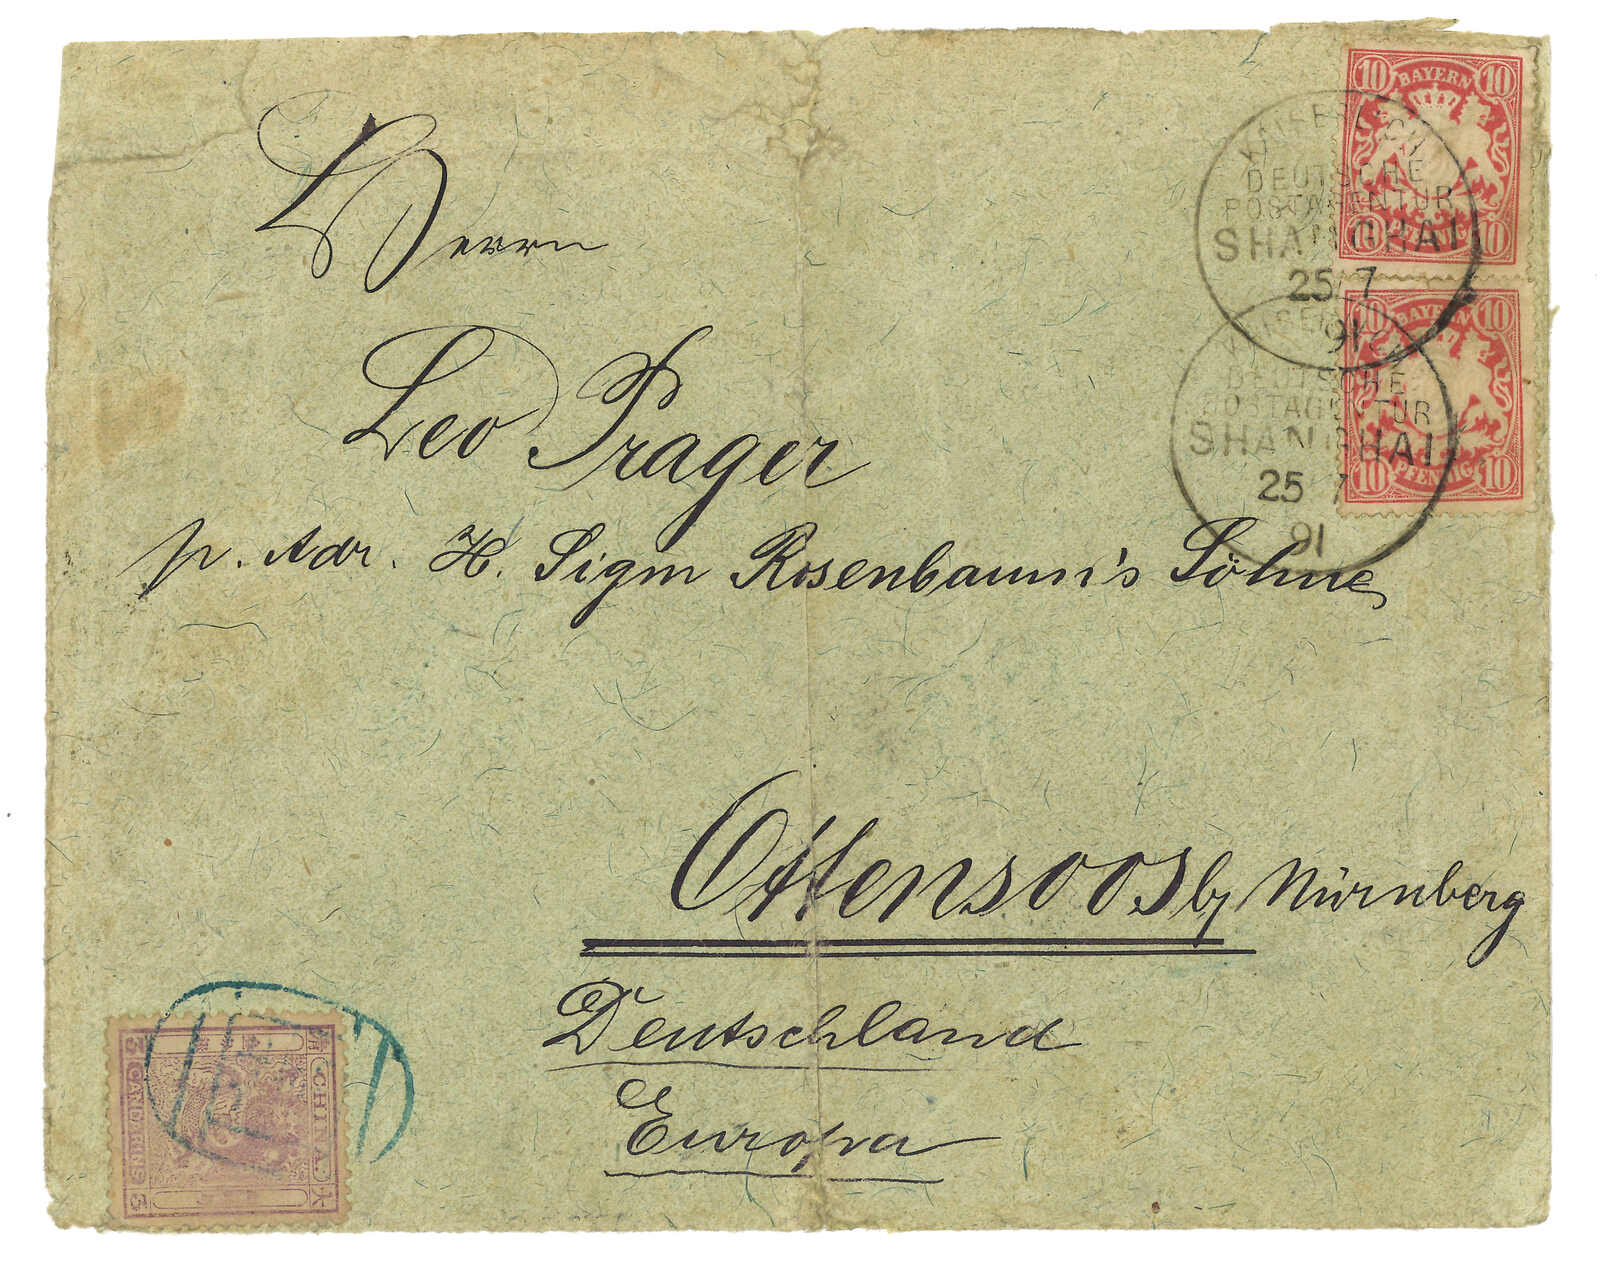 Herrn
Leo Prager
p. Adr. H. Sigm Rosenbaum's Söhne
Ottensoos b/ Nürnberg
Deutschland
Europa
10 BAYERN 10
10 PFENNIG 10
10 BAYERN 10
10 PFENNIG 10
KAISERLICH
DEUTSCHE
POSTAGENTUR
SHANGHAI
25 7
91
DEUTSCHE
POSTAGENTUR
SHANGHAI
25 7
91
CHINA
3 CANDARINS 3
大